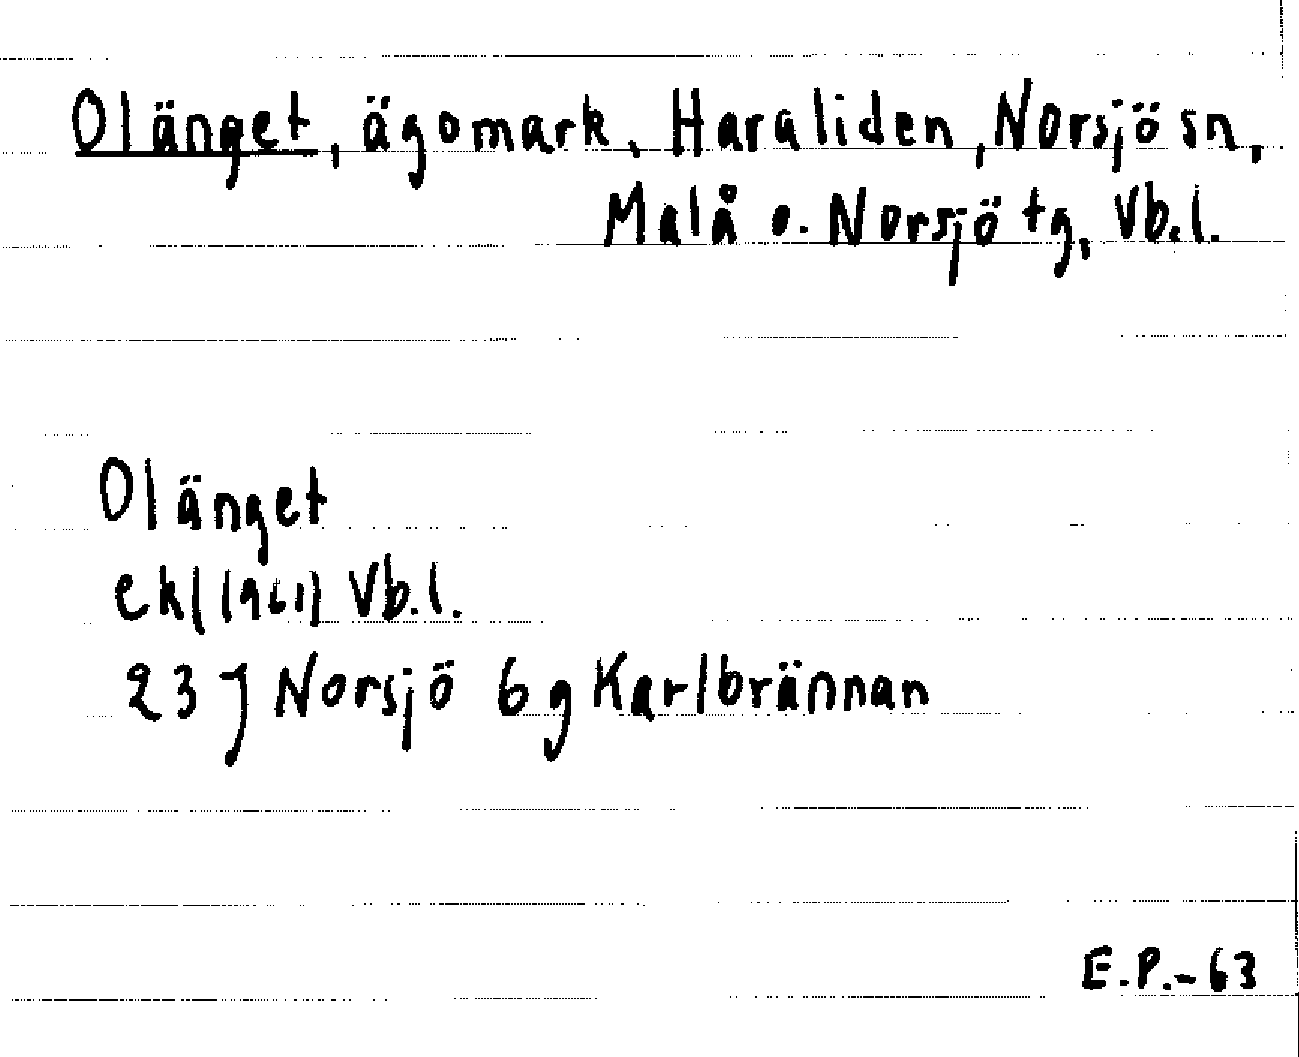 Olänget, ägomark, Haraliden, Norsjö sn,
Malå o. Norsjö tg, Vb.l.
Olänget
ekl (1961) Vb.l.
23 J Norsjö 6 g Karlbrännan
E.P.-63